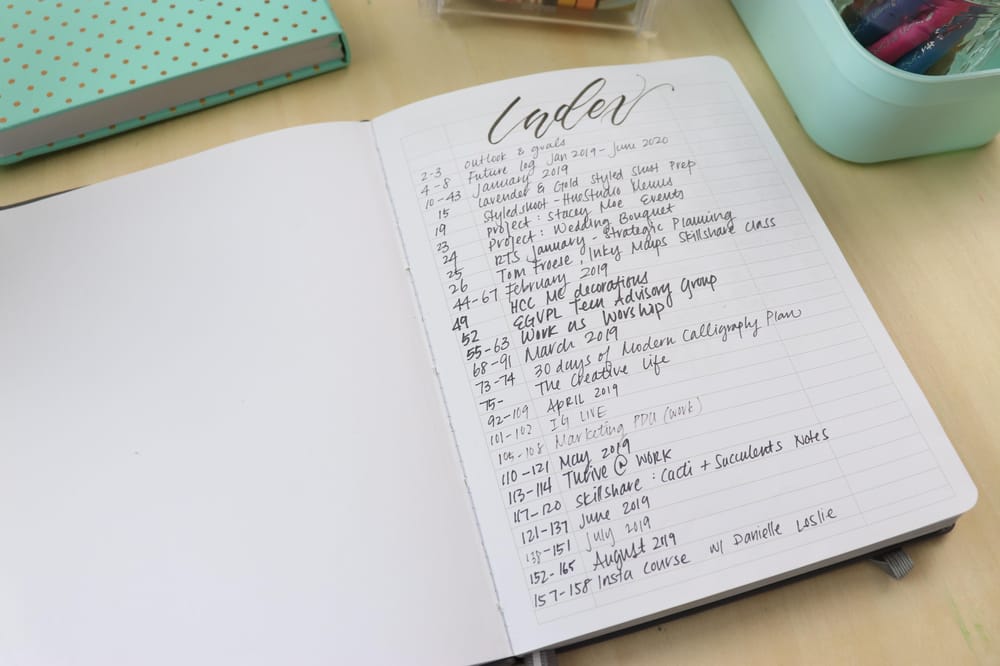 Index
2-3 outlook & goals
4-8 Future log Jan 2019 - June 2020
10-43 January 2019
15 Lavender & Gold styled shoot Prep
19 Styled shoot - HueStudio Venues
23 Project: Stacey Moe Events
24 Project: Wedding Bouquet
25 RTS January - Strategic Planning
26 Tom Froese, Inky Maps Skillshare class
44-67 February 2019
49 HCC ME decorations
52 EGVPL Teen Advisory Group
55-63 Work as Worship
68-91 March 2019
73-74 30 days of Modern Calligraphy Plan
75- The Creative Life
92-109 April 2019
101-102 IG LIVE
105-108 Marketing PDU (work)
110-121 May 2019
113-114 Thrive @ WORK
117-120 Skillshare: Cacti + Succulents Notes
121-137 June 2019
138-151 July 2019
152-165 August 2019
157-158 Insta course w/ Danielle Leslie